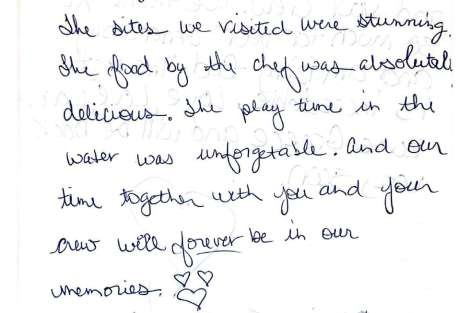 The sites we visited were stunning.
The food by the chef was absolutel
delicious. The play time in the
water was unforgetable. And our
time together with you and your
crew will forever be in our
memories. ♡♡♡